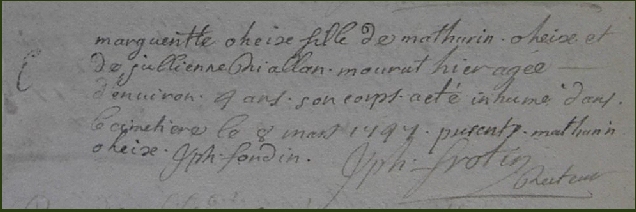 marguentte oheixe fille de mathurin . oheixe et
de jullienne Diallan . mourut hier agée
d'enuiron . 4 ans . son corps . a eté inhumé dans .
le cimetiere le 8 mars 1747 . presents . mathurin
oheixe . Jph . fondin . Jph . frotin
Recteur